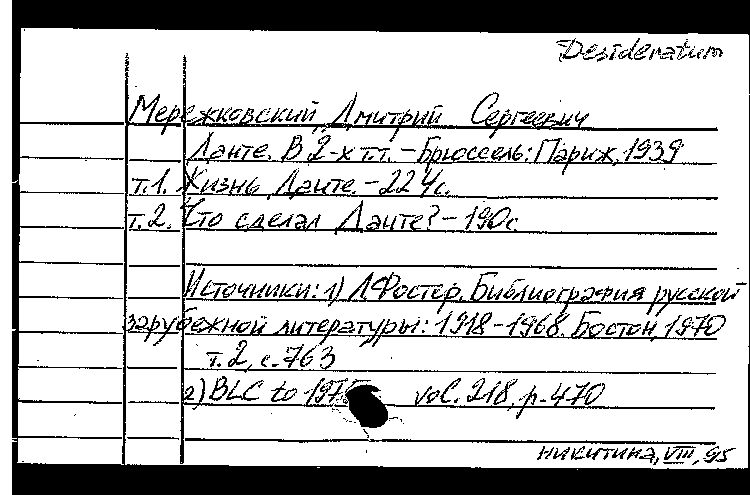 Desideratum
Мережковский, Дмитрий Сергеевич
Данте. В 2-х т.т. - Брюссель: Париж, 1939
т.1. Жизнь Данте. - 224с.
т.2. Что сделал Данте? - 190с.
Источники: 1) Л Фостер. Библиография русской
зарубежной литературы: 1918-1968. Бостон, 1970
т.2, с.763
2) BLC to 1975 vol. 218, p.470
никитина, VIII, 95